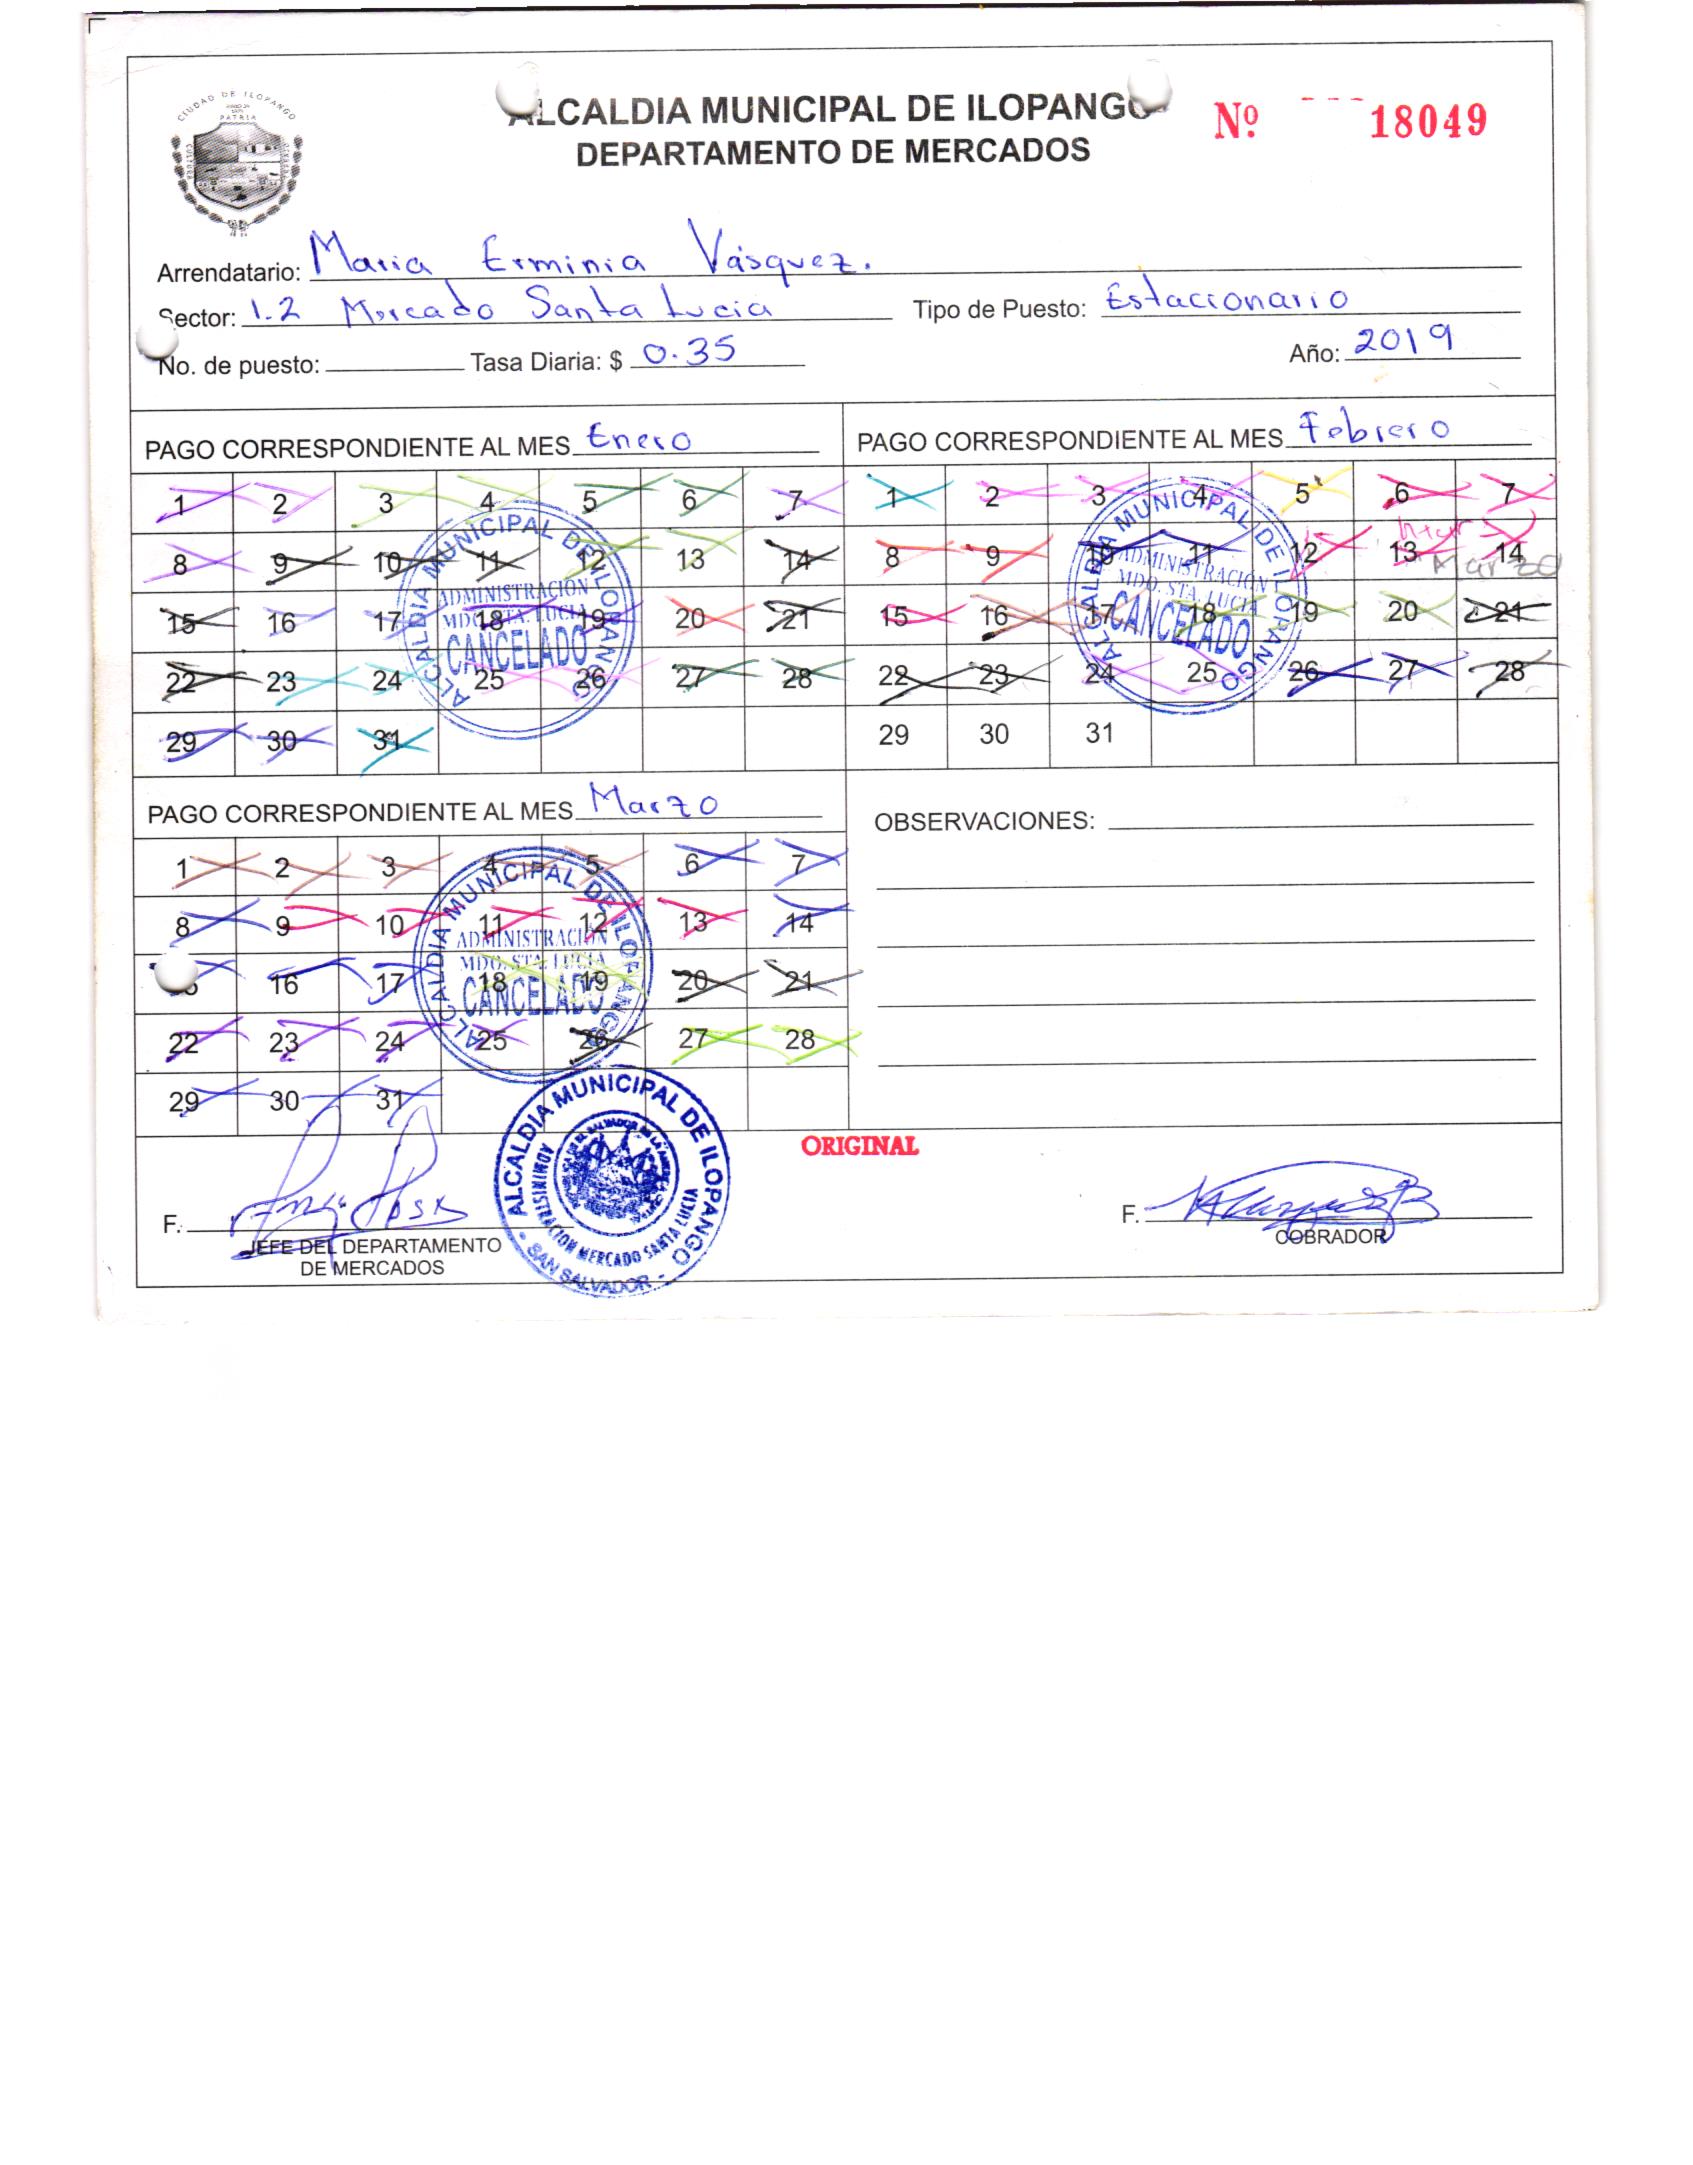 CIUDAD DE ILOPANGO
PATRIA
CULTURA
ALCALDIA MUNICIPAL DE ILOPANGO
DEPARTAMENTO DE MERCADOS
Nº 18049
Arrendatario: Maria Erminia Vásquez.
Sector: 1.2 Mercado Santa Lucia Tipo de Puesto: Estacionario
No. de puesto: Tasa Diaria: $ 0.35 Año: 2019
PAGO CORRESPONDIENTE AL MES Enero
1 2 3 4 5 6 7
8 9 10 11 12 13 14
15 16 17 18 19 20 21
22 23 24 25 26 27 28
29 30 31
ALCALDIA MUNICIPAL DE ILOPANGO
ADMINISTRACION
MDO. STA. LUCIA
CANCELADO
PAGO CORRESPONDIENTE AL MES Febrero
1 2 3 4 5 6 7
8 9 10 11 12 13 14
Marzo
15 16 17 18 19 20 21
22 23 24 25 26 27 28
29 30 31
ALCALDIA MUNICIPAL DE ILOPANGO
ADMINISTRACION
MDO. STA. LUCIA
CANCELADO
PAGO CORRESPONDIENTE AL MES Marzo
1 2 3 4 5 6 7
8 9 10 11 12 13 14
16 17 18 19 20 21
22 23 24 25 26 27 28
29 30 31
ALCALDIA MUNICIPAL DE ILOPANGO
ADMINISTRACION
MDO. STA. LUCIA
CANCELADO
OBSERVACIONES:
ORIGINAL
ALCALDIA MUNICIPAL DE ILOPANGO
ADMINISTRACION MERCADO SANTA LUCIA
- SAN SALVADOR -
F.
JEFE DEL DEPARTAMENTO
DE MERCADOS
F.
COBRADOR